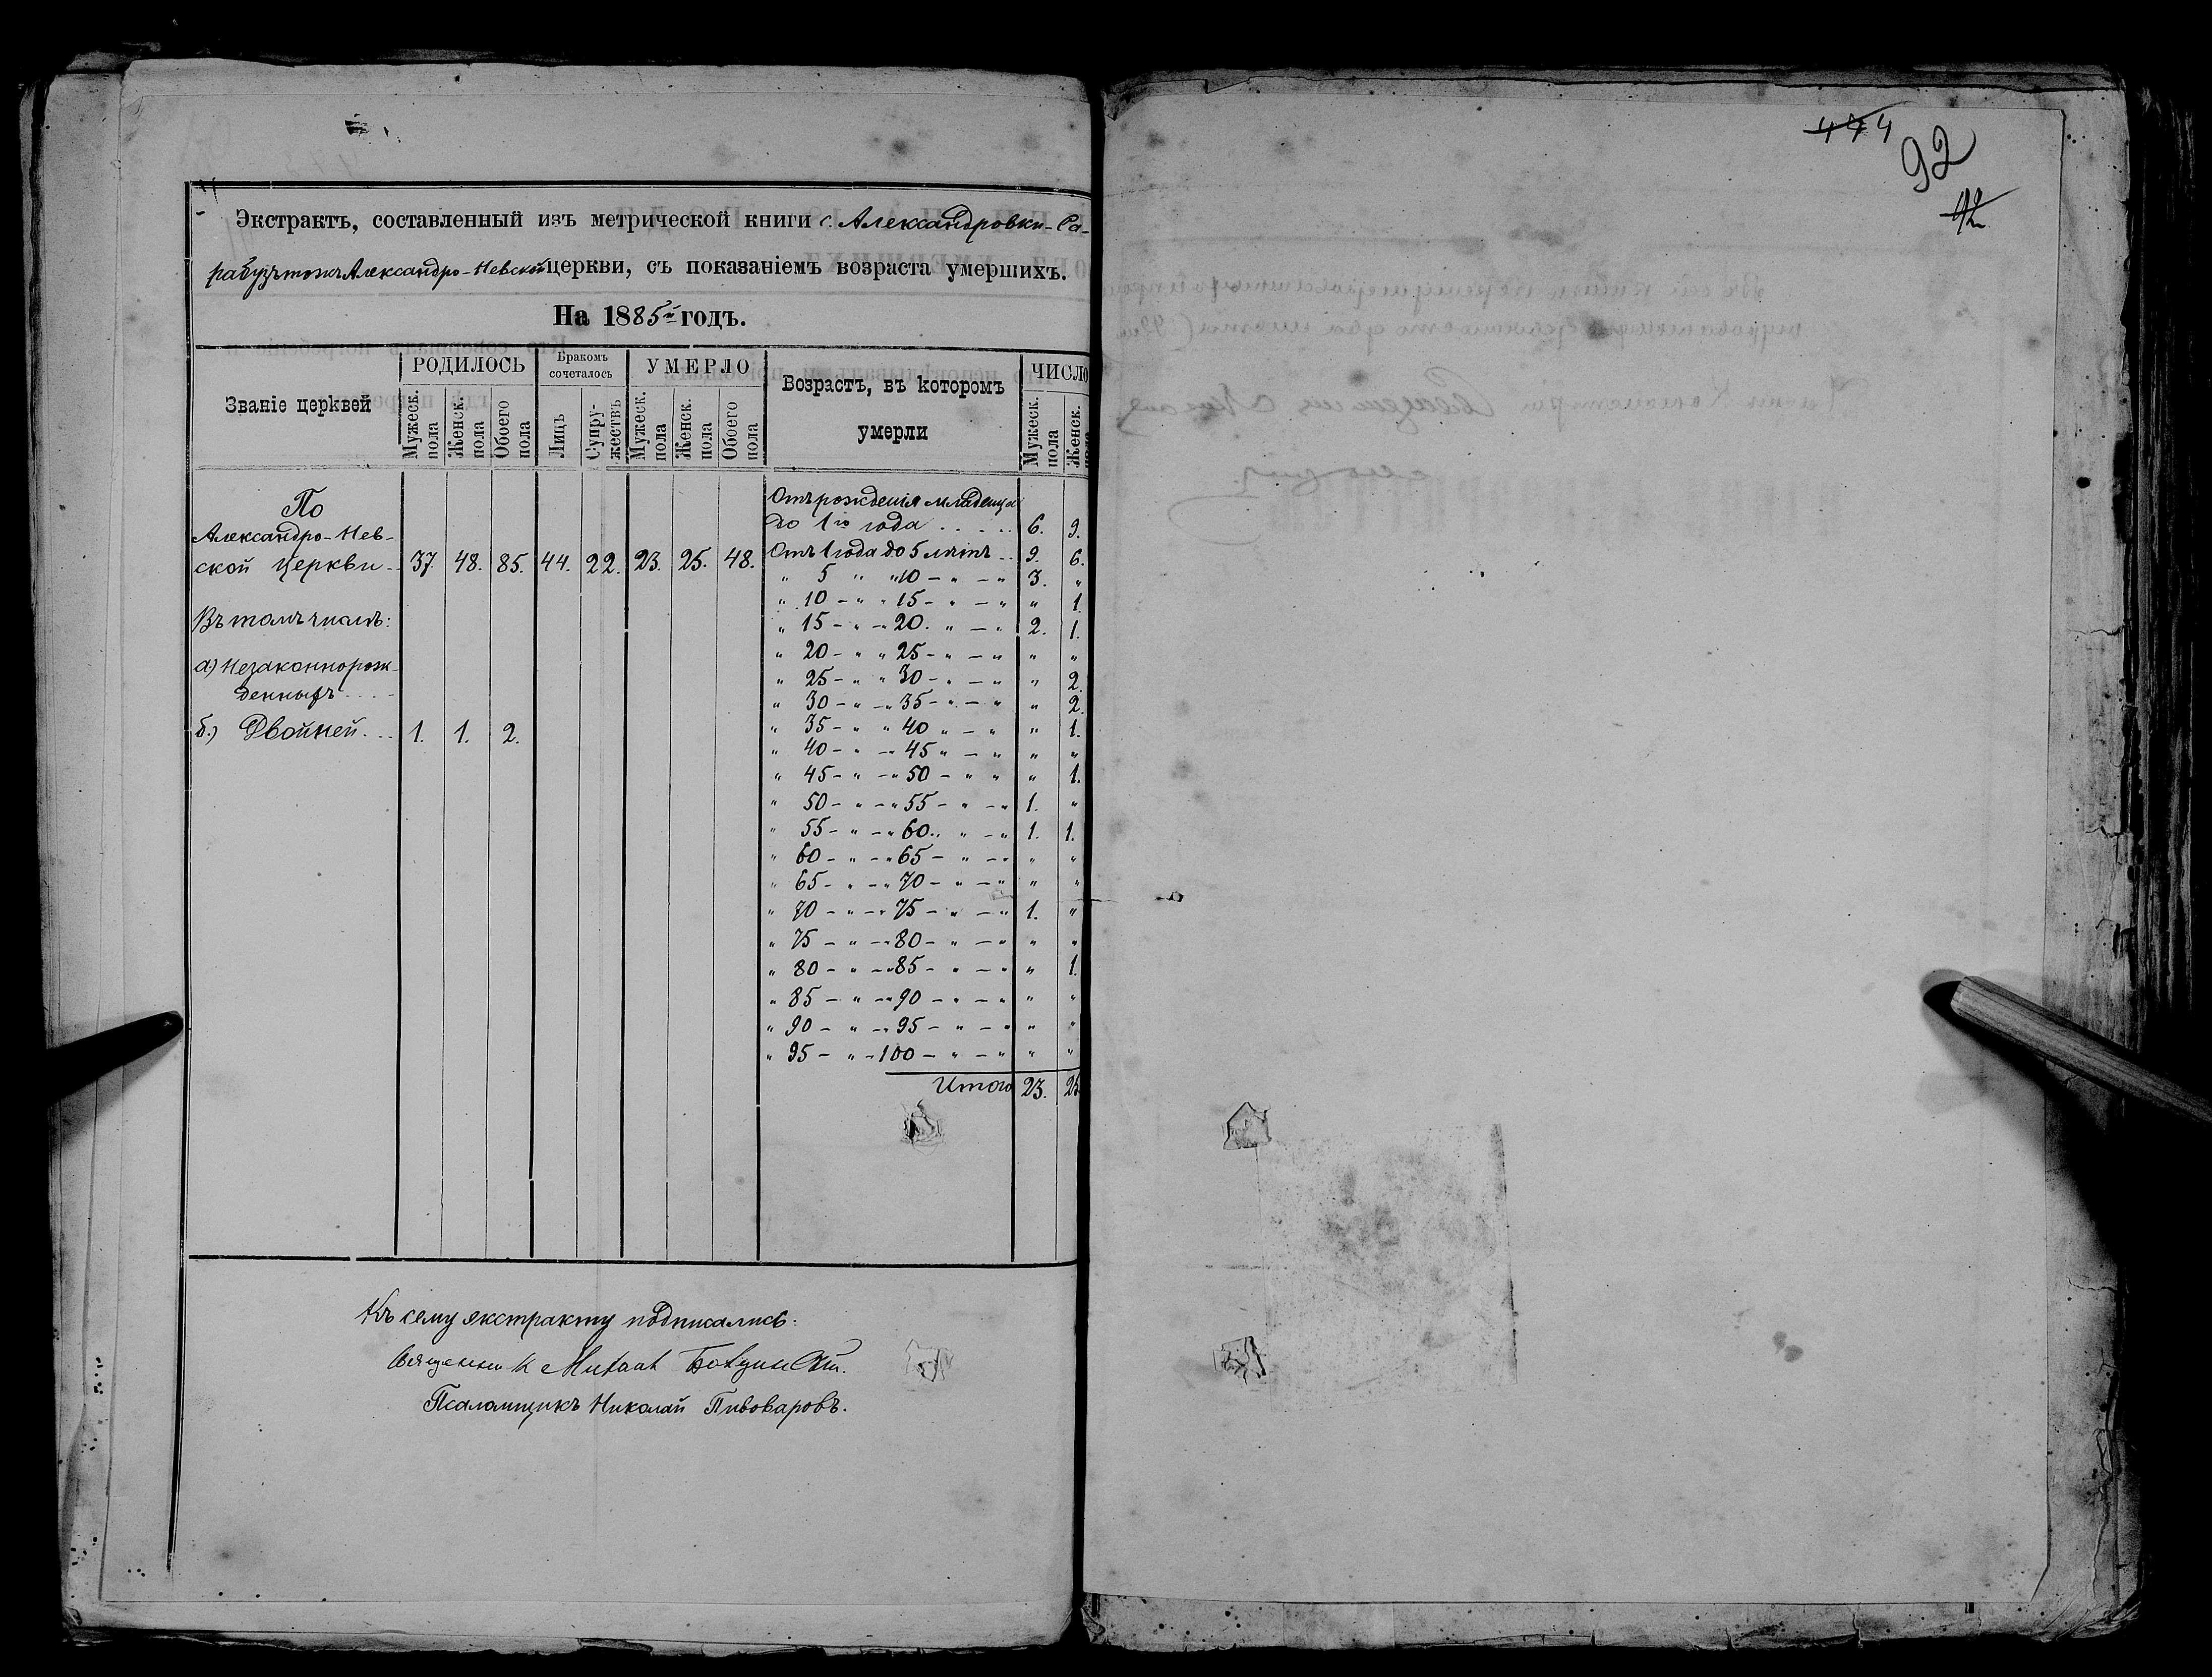 Экстрактъ, составленный изъ метрической книги с. Александровки-Са-
рабузътожъ Александро-Невской церкви, съ показаніемъ возраста умершихъ.
На 1885й годъ.
Званіе церквей
РОДИЛОСЬ
Мужеск. пола
Женск. пола
Обоего пола
Бракомъ сочеталось
Лицъ
Супру-жествъ
УМЕРЛО
Мужеск. пола
Женск. пола
Обоего пола
Возрастъ, въ которомъ
умерли
ЧИСЛО
Мужеск. пола
Женск.
По
Александро-Нев-
ской церкви - 37. 48. 85. 44. 22. 23. 25. 48.
Въ томъ числѣ:
а) Незаконнорож-
денныхъ . . . -
б.) Двойней . . - 1. 1. 2.
Отъ рожденія младенца
до 1го года . . . . . 6. 9.
Отъ 1 года до 5 лѣтъ . . 9. 6.
" 5 " " 10 - " - " 3. "
" 10 - " " 15 - " - " " 1.
" 15 - " - 20. " - " 2. 1.
" 20 - " " 25 - " - " " "
" 25 - " " 30 - " - " " 2.
" 30 - " - " 35 - " - " " 2.
" 35 - " " 40 " - " " 1.
" 40 - " - " 45 " - " " "
" 45 - " - " 50 - " " " 1.
" 50 - " - " 55 - " - " 1. "
" 55 - " - " 60 . " - " 1. 1.
" 60 - " - " 65 - " - " " "
" 65 - " - " 70 - " - " " "
" 70 - " - " 75 - " - " 1. "
" 75 - " - " 80 - " - " " "
" 80 - " - " 85 - " - " " 1.
" 85 - " - " 90 - " - " " "
" 90 - " - " 95 - " - " " "
" 95 - " - 100 - " - " " "
Итого 23. 25
Къ сему экстракту подписались:
Священникъ Михаилъ
Псаломщикъ Николай Пивоваровъ.
444
92
92